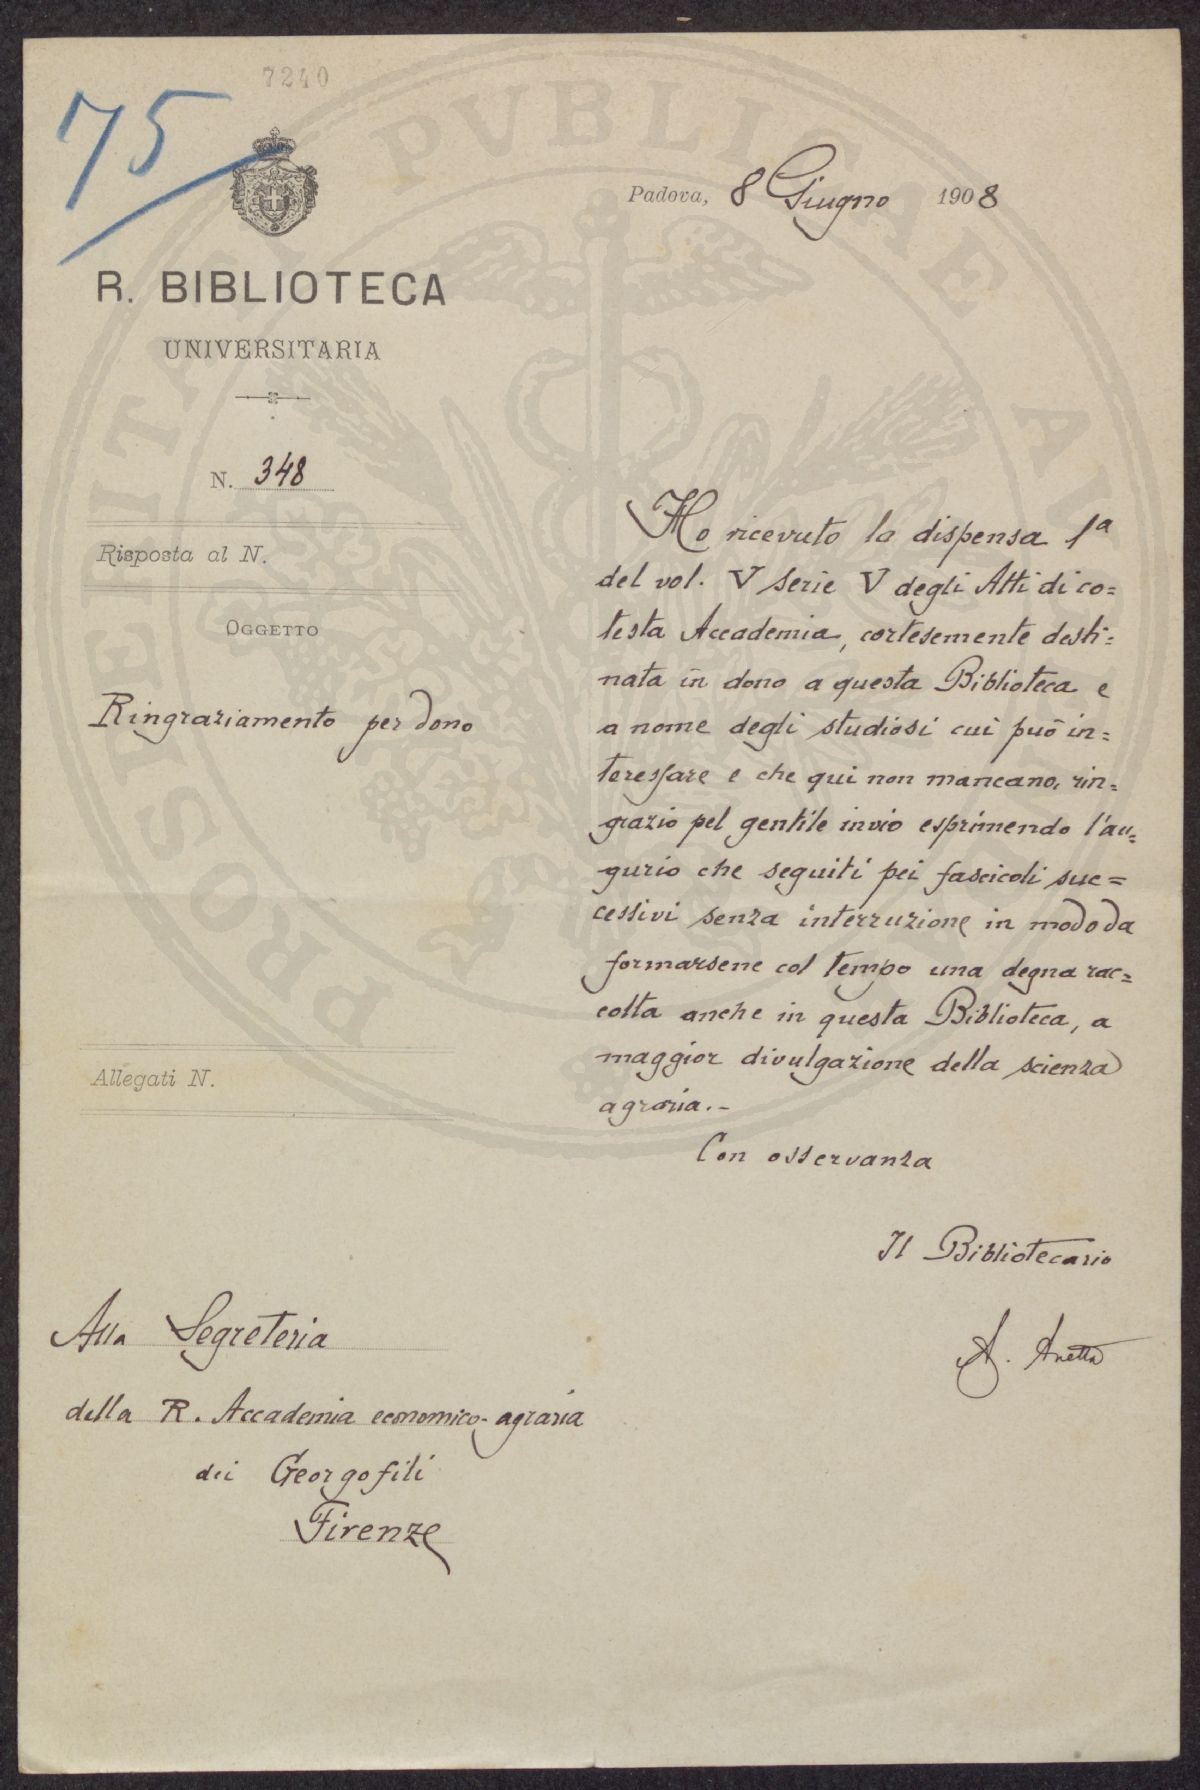 7240
75
Padova, 8 Giugno 1908
R. BIBLIOTECA
UNIVERSITARIA
N. 348
Risposta al N.
OGGETTO
Ringraziamento per dono
Ho ricevuto la dispensa 1ª
del vol. V serie V degli Atti di co=
testa Accademia, cortesemente desti=
nata in dono a questa Biblioteca e
a nome degli studiosi cui può in=
teressare e che qui non mancano, rin=
grazio pel gentile invio esprimendo l'au=
gurio che seguiti pei fascicoli suc=
cessivi senza interruzione in modo da
formarsene col tempo una degna rac=
colta anche in questa Biblioteca, a
maggior divulgazione della scienza
agraria.-
Con osservanza
Il Bibliotecario
A.
Allegati N.
Alla Segreteria
della R. Accademia economico-agraria
dei Georgofili
Firenze
PROSPERITATI PVBLICAE AVGENDAE